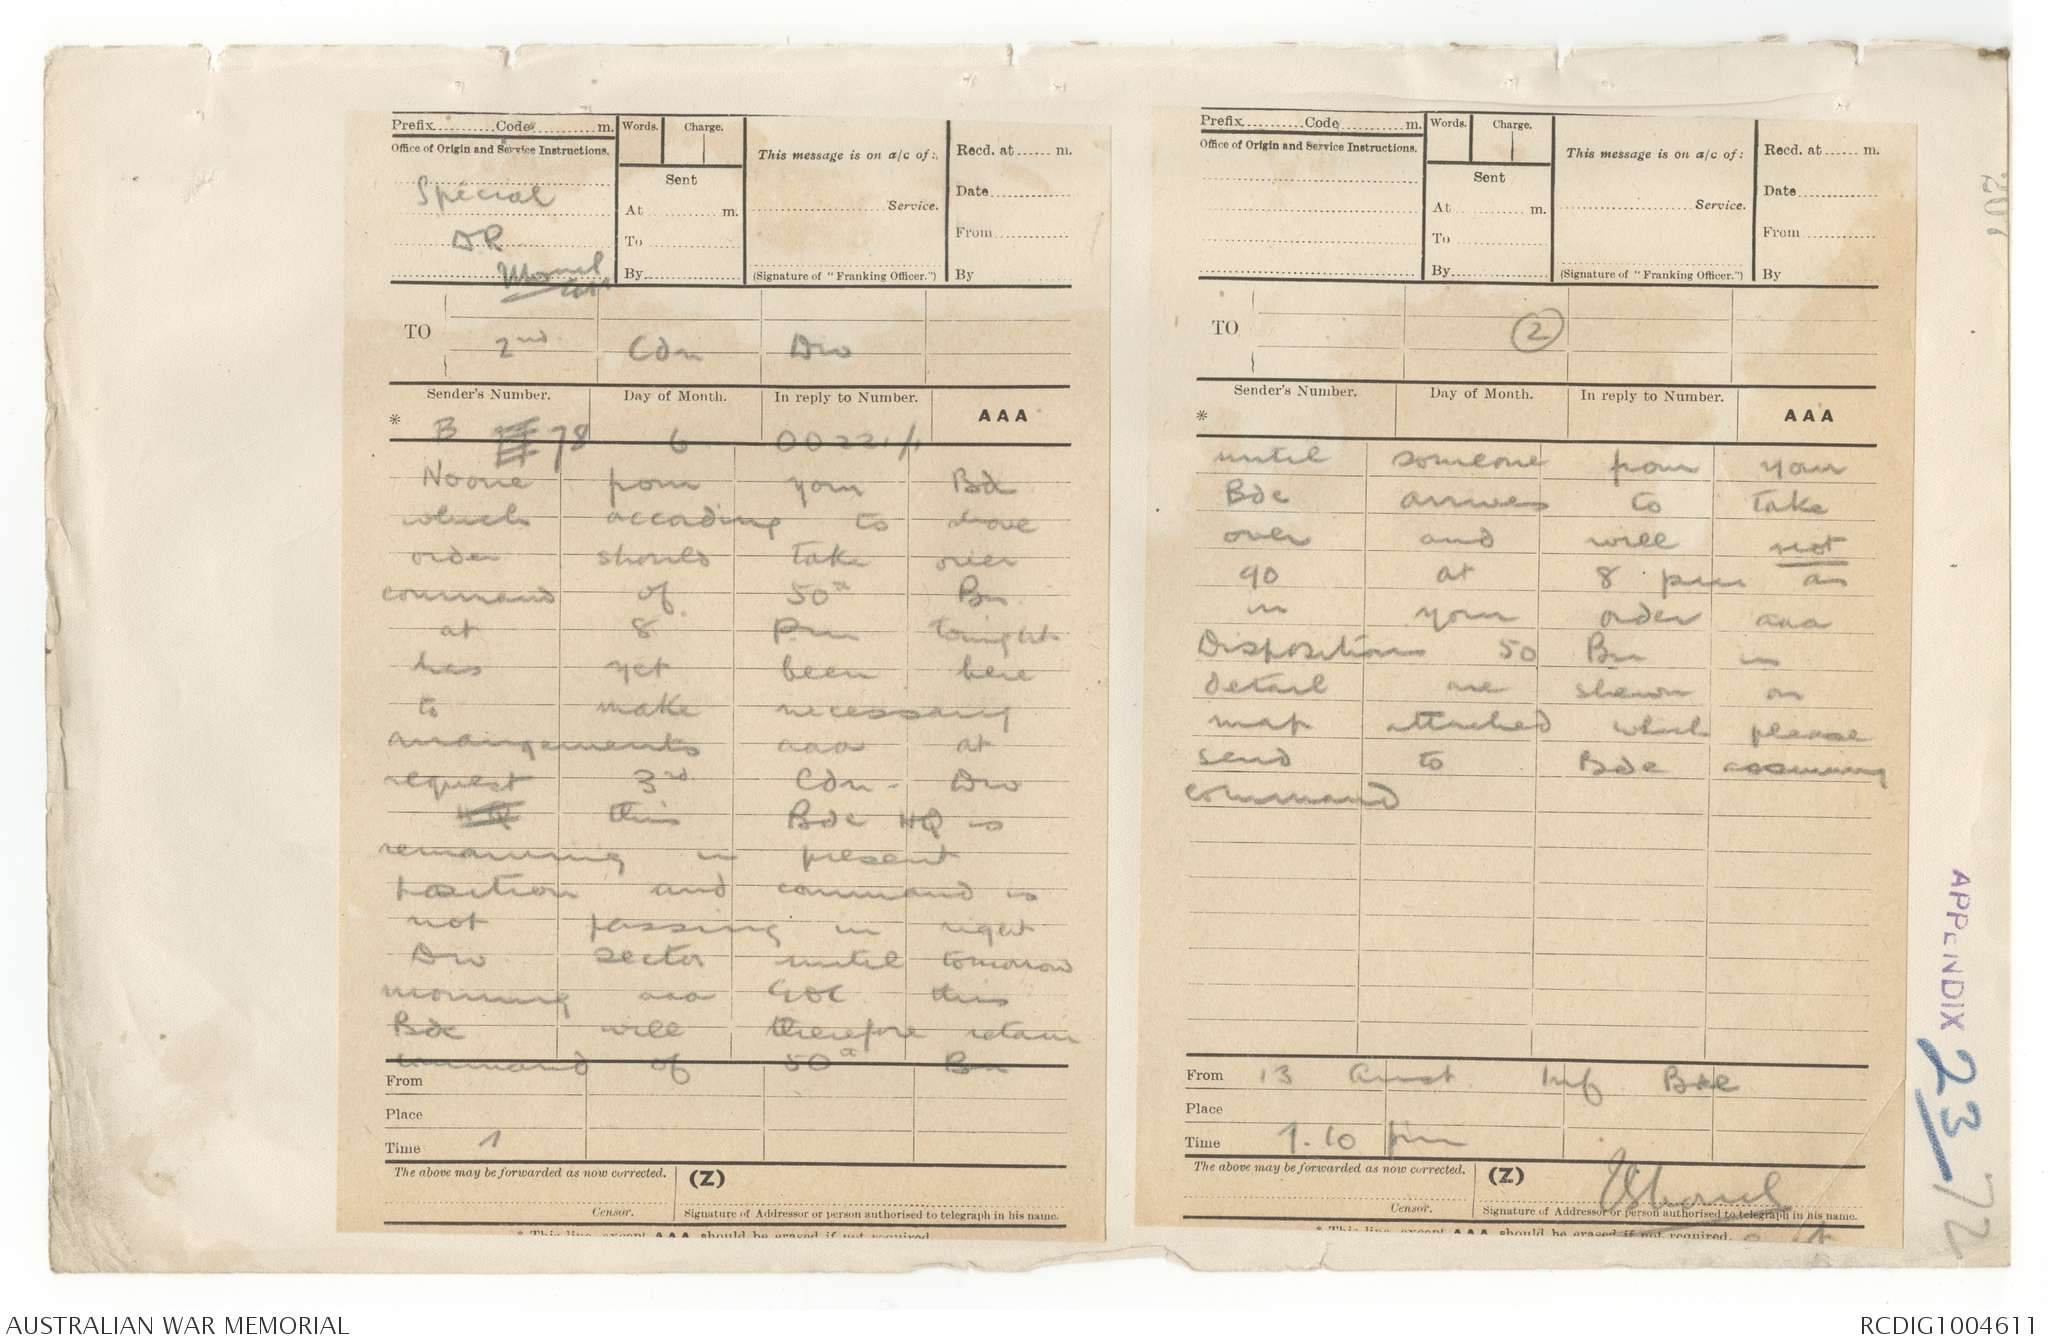 Prefix..........Code..........m.
Words.
Charge.
Office of Origin and Service Instructions.
Special
DR
Sent
At ............ m.
To
By
This message is on a/c of:
Service.
(Signature of "Franking Officer.")
Recd. at ...... m.
Date
From
By
TO
2nd Cdn Div
Sender's Number. Day of Month. In reply to Number. AAA
* B 78 6 OO221/1
No one from your Bde
which according to above
order should take over
command of 50th Bn
at 8 Pm tonight
has yet been here
to make necessary
arrangements aaa at
request 3rd Cdn. Div
this Bde HQ is
remaining in present
position and command is
not passing in right
Div sector until tomorrow
morning aaa GOC this
Bde will therefore retain
command of 50th Bn
From
Place
Time
The above may be forwarded as now corrected. (Z)
Censor. Signature of Addressor or person authorised to telegraph in his name.
* This line, except AAA should be erased if not required.
Prefix..........Code..........m.
Words.
Charge.
Office of Origin and Service Instructions.
Sent
At ............ m.
To
By
This message is on a/c of:
Service.
(Signature of "Franking Officer.")
Recd. at ...... m.
Date
From
By
TO
2
Sender's Number. Day of Month. In reply to Number. AAA
*
until someone from your
Bde arrives to take
over and will not
go at 8 pm as
in your order aaa
Dispositions 50 Bn in
detail are shewn on
map attached which please
send to Bde assuming
command
From 13 Aust. Inf Bde
Place
Time 1.10 pm
The above may be forwarded as now corrected. (Z)
Censor. Signature of Addressor or person authorised to telegraph in his name.
* This line, except AAA should be erased if not required.
APPENDIX 23
72
AUSTRALIAN WAR MEMORIAL
RCDIG1004611